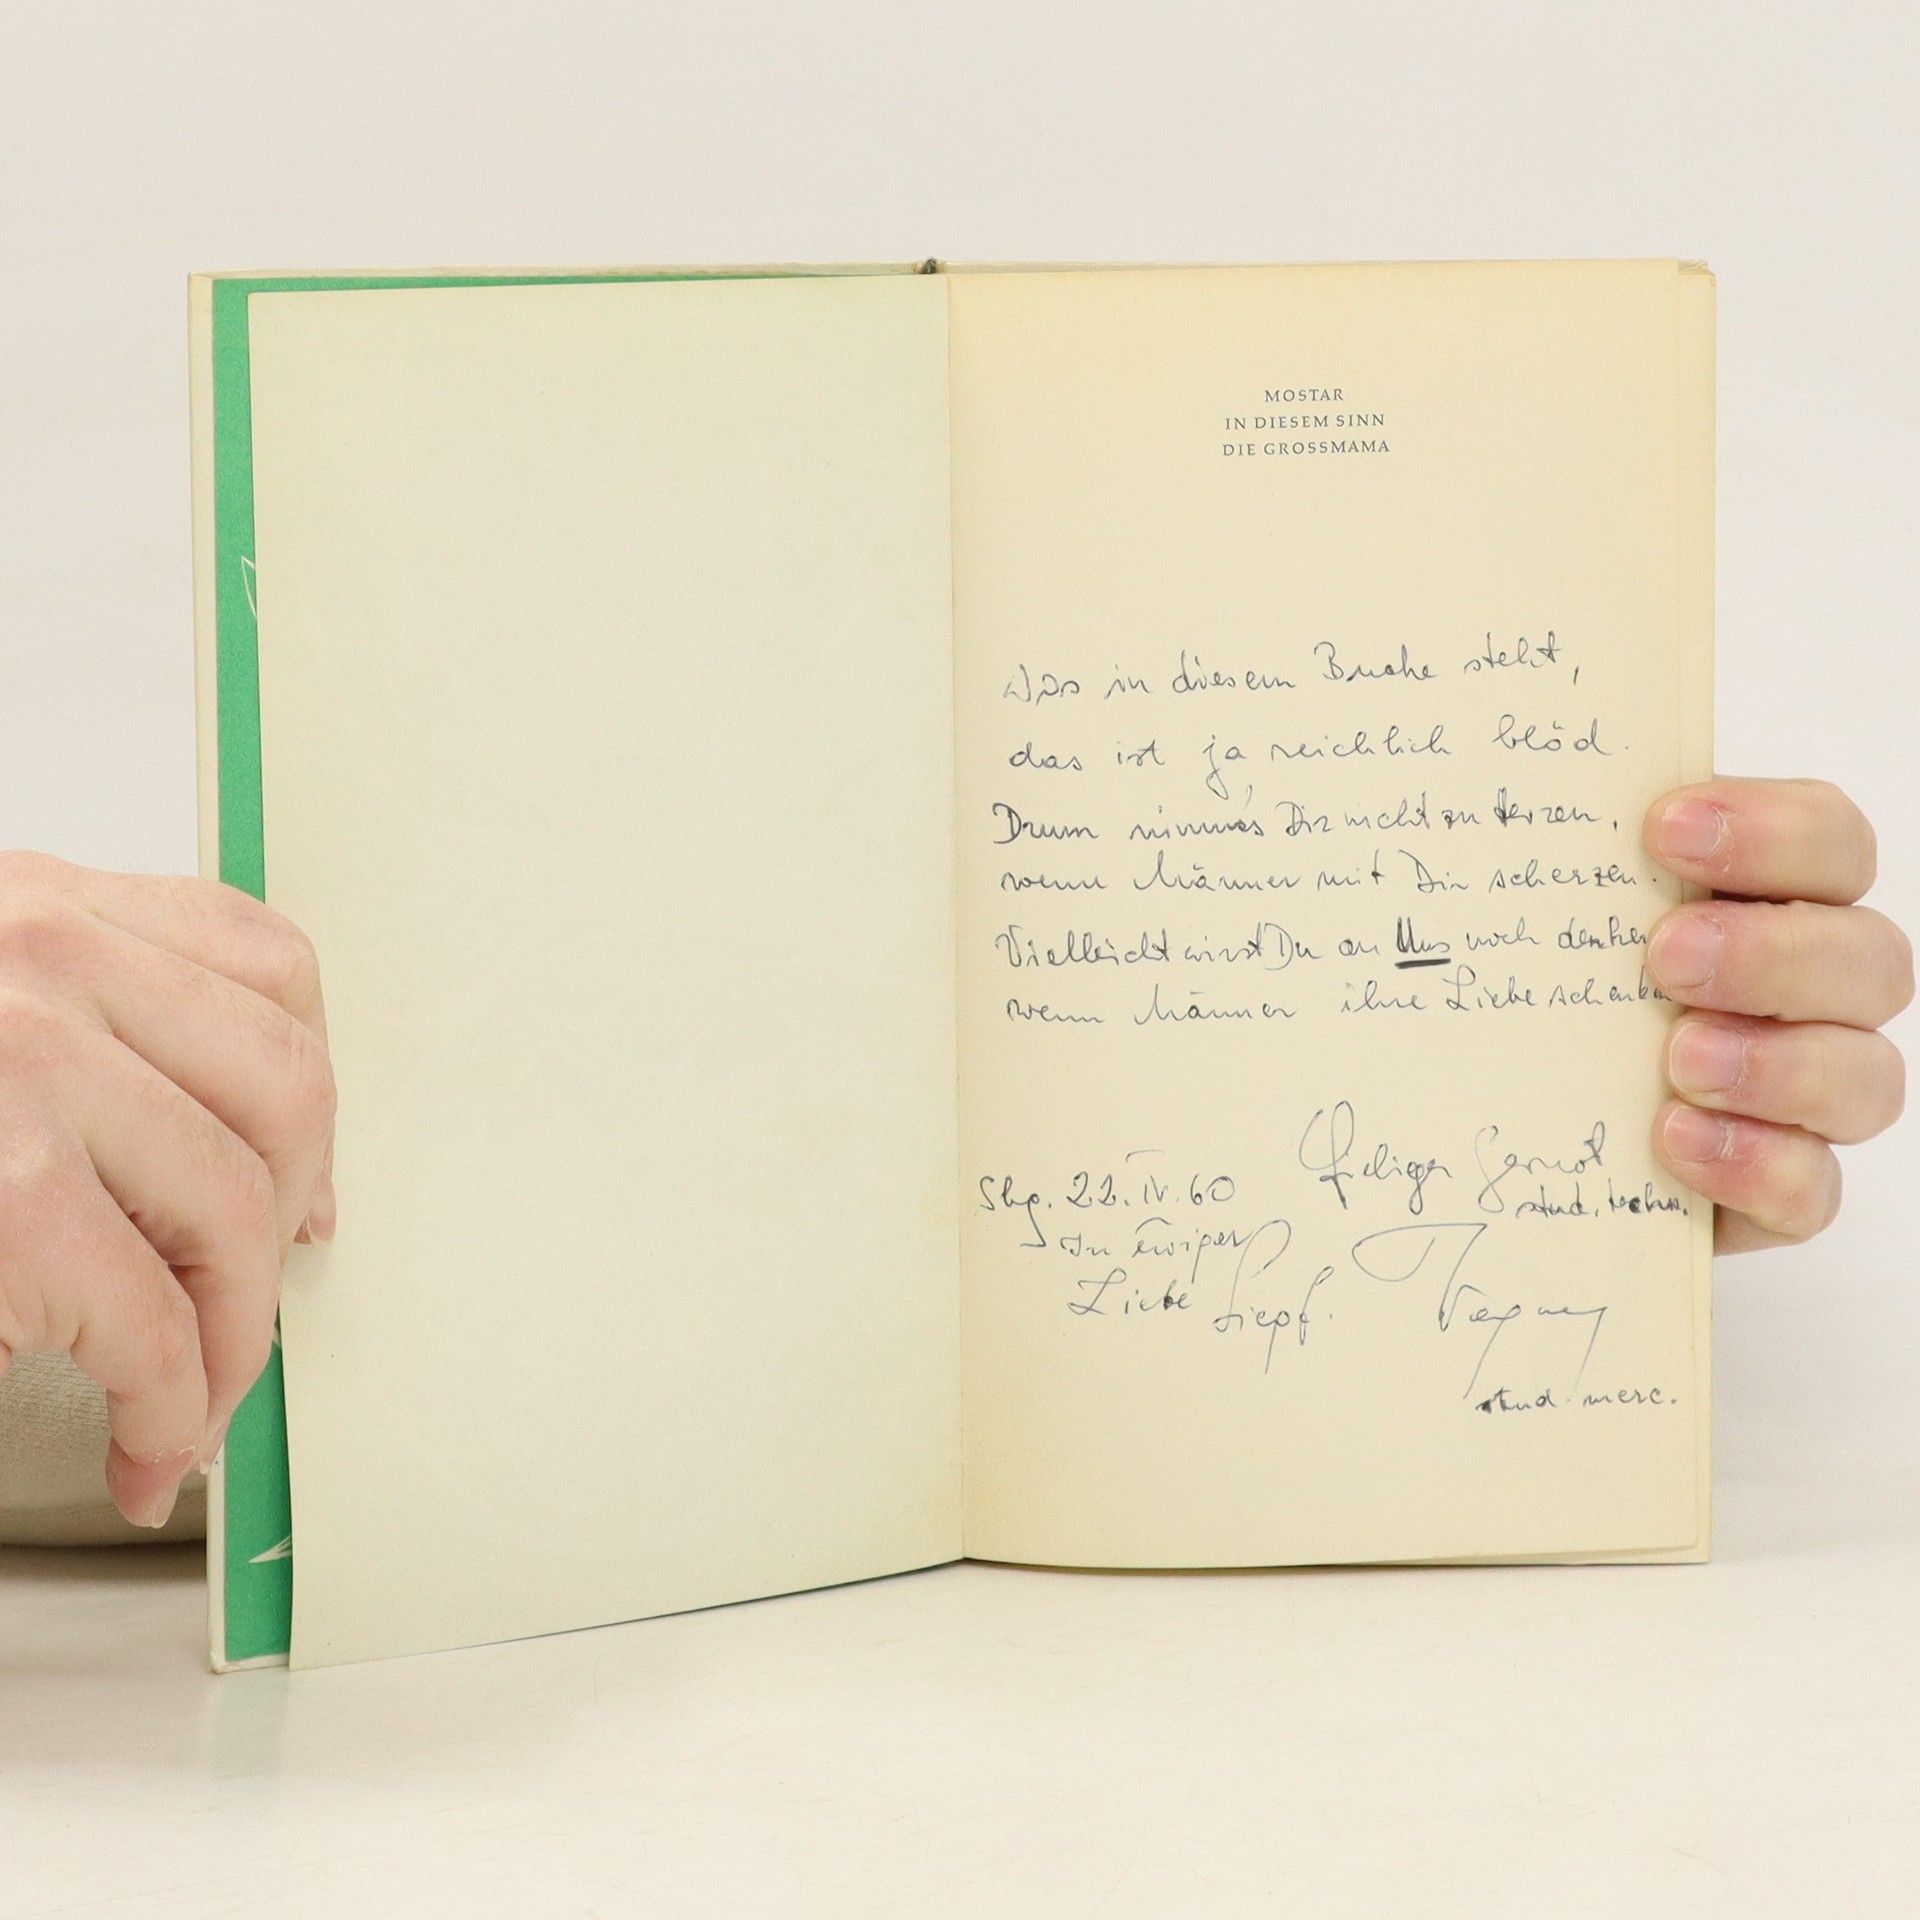 MOSTAR
IN DIESEM SINN
DIE GROSSMAMA
Was in diesem Buche steht,
das ist ja reichlich blöd.
Drum nimm's Dir nicht zu Herzen,
wenn Männer mit Dir scherzen.
Vielleicht wirst Du an Uns noch denken
wenn Männer ihre Liebe schenken
Sbg. 22. IV. 60
Gernot
stud. techn.
In Ewiger
Liebe
stud. merc.